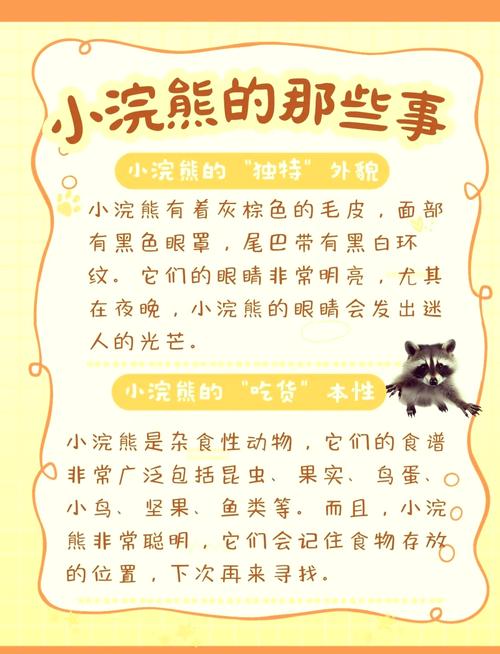 小浣熊的那些事
小浣熊的“独特”外貌
小浣熊有着灰棕色的毛皮，面部
有黑色眼罩，尾巴带有黑白环
纹。它们的眼睛非常明亮，尤其
在夜晚，小浣熊的眼睛会发出迷
人的光芒。
小浣熊的“吃货”本性
小浣熊是杂食性动物，它们的食谱
非常广泛包括昆虫、果实、鸟蛋、
小鸟、坚果、鱼类等。而且，小浣
熊非常聪明，它们会记住食物存放
的位置，下次再来寻找。